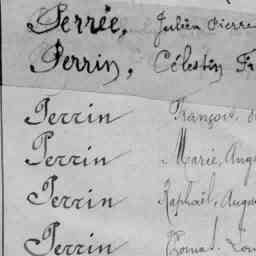 Perrée, Julien Pierre
Perrin, Célestin Fr
Perrin François,
Perrin Marie, Aug
Perrin Raphaël, Augu
Perrin